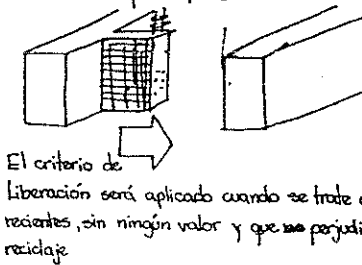 El criterio de
Liberación será aplicado cuando se trate
recientes, sin ningún valor y que perjudi
reciclaje